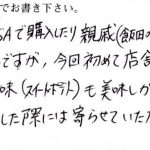 でお書き下さい。
SAで購入したり親戚(飯田の
ですが，今回初めて店舗
味(スイートポテト)も美味しか
した際には寄らせていただ